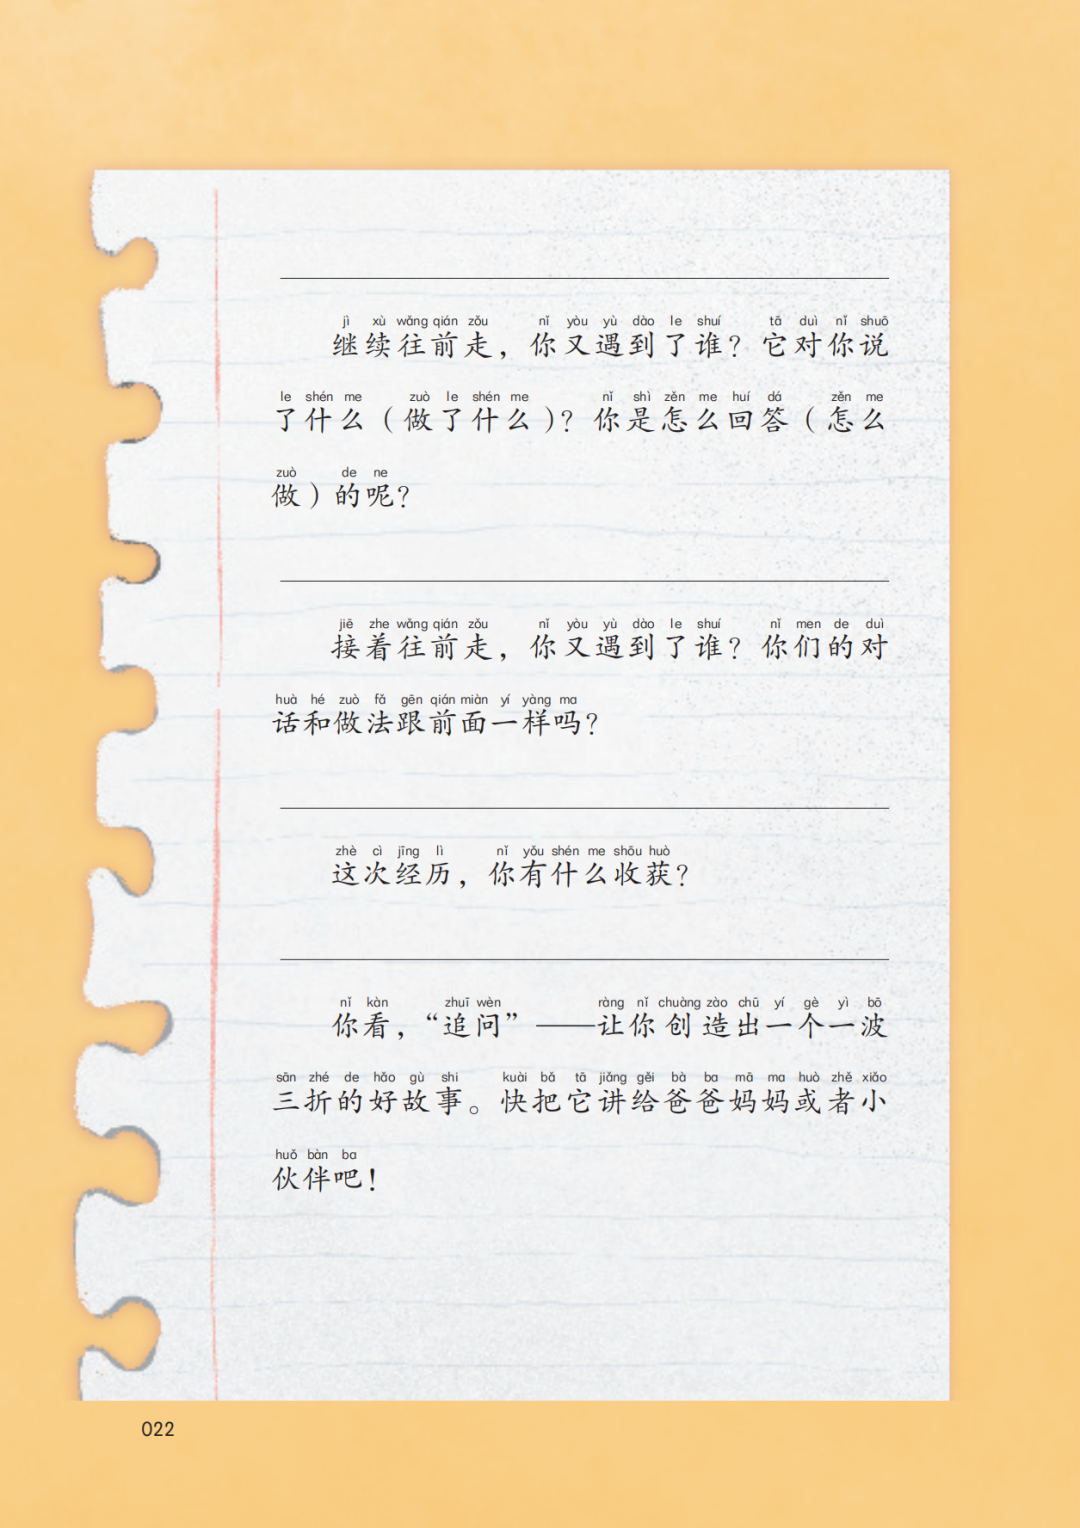 jì xù wǎng qián zǒu nǐ yòu yù dào le shuí tā duì nǐ shuō
继续往前走，你又遇到了谁？它对你说
le shén me zuò le shén me nǐ shì zěn me huí dá zěn me
了什么（做了什么）？你是怎么回答（怎么
zuò de ne
做）的呢？
jiē zhe wǎng qián zǒu nǐ yòu yù dào le shuí nǐ men de duì
接着往前走，你又遇到了谁？你们的对
huà hé zuò fǎ gēn qián miàn yí yàng ma
话和做法跟前面一样吗？
zhè cì jīng lì nǐ yǒu shén me shōu huò
这次经历，你有什么收获？
nǐ kàn zhuī wèn ràng nǐ chuàng zào chū yí gè yì bō
你看，“追问”——让你创造出一个一波
sān zhé de hǎo gù shi kuài bǎ tā jiǎng gěi bà ba mā ma huò zhě xiǎo
三折的好故事。快把它讲给爸爸妈妈或者小
huǒ bàn ba
伙伴吧！
022